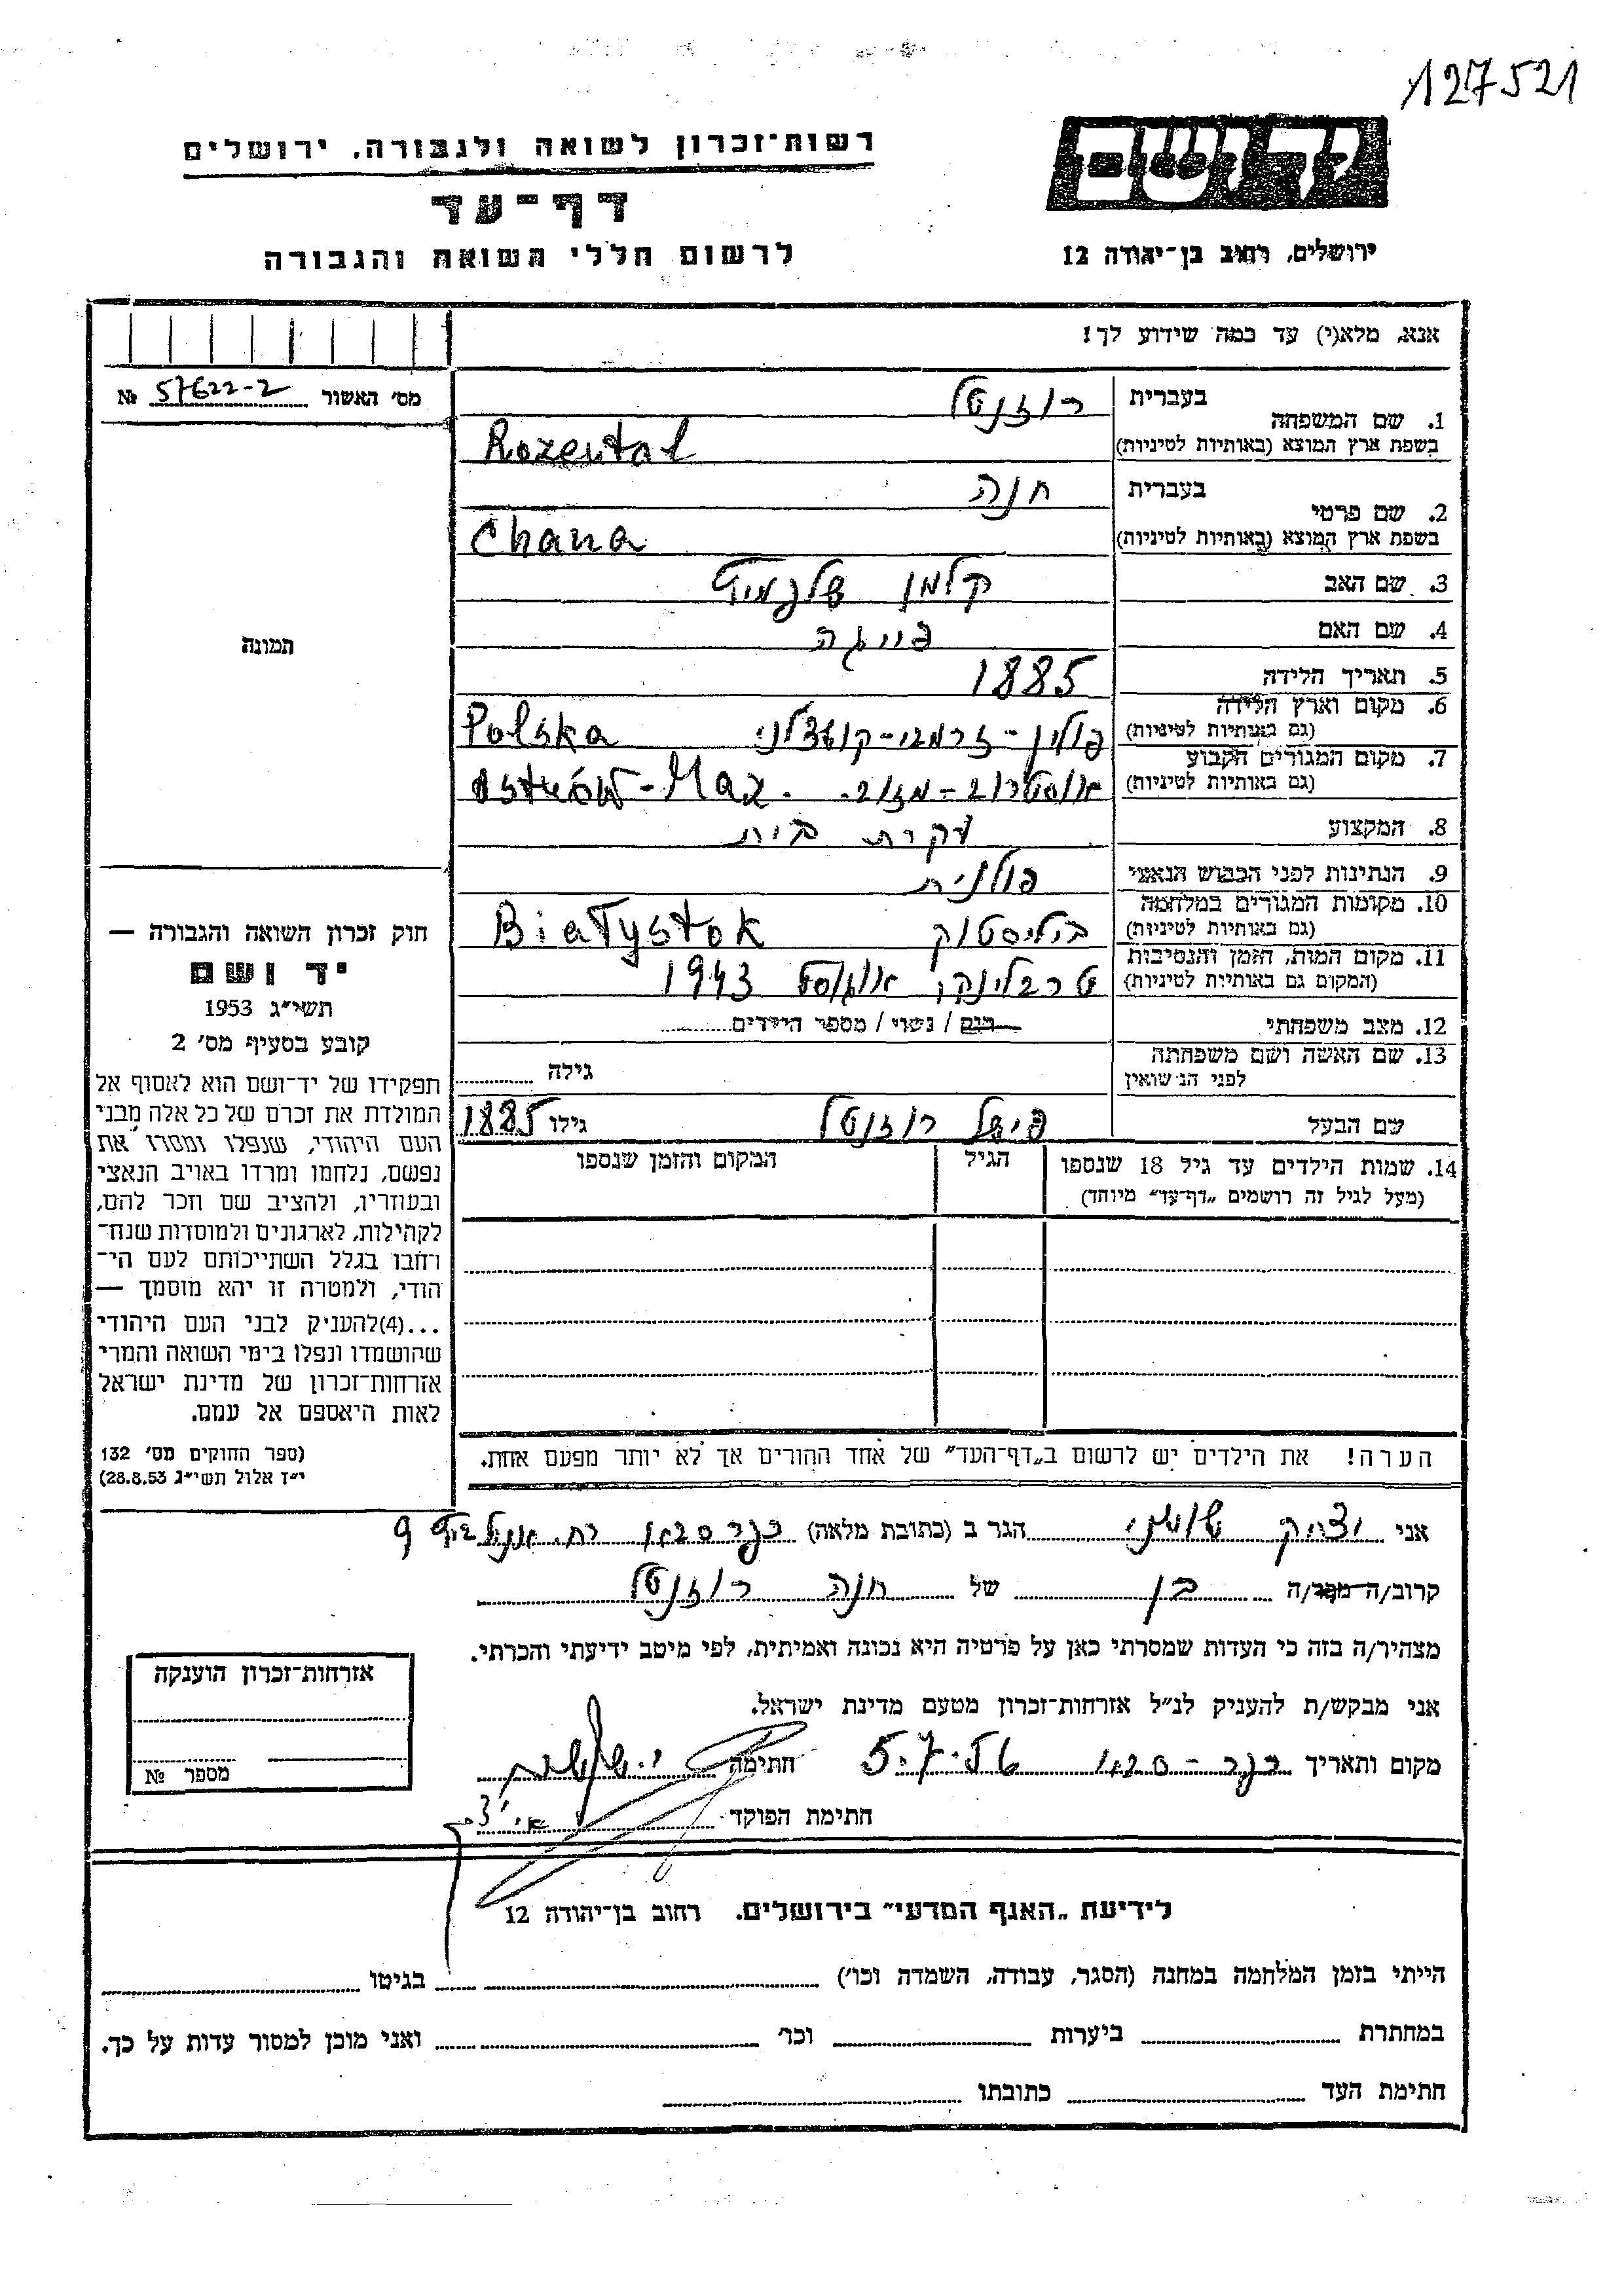 127521
רשות־זכרון לשואה ולגבורה, ירושלים
דף־עד
לרשום חללי השואה והגבורה
ידושם
ירושלים, רחוב בן־יהודה 12
אנא, מלא(י) עד כמה שידוע לך!
מס׳ האשור 57622-2 №
תמונה
1. שם המשפחה
בעברית רוזנטל
בשפת ארץ המוצא (באותיות לטיניות) Rozental
2. שם פרטי
בעברית חנה
בשפת ארץ המוצא (באותיות לטיניות) Chana
3. שם האב קלמן
4. שם האם פייגה
5. תאריך הלידה 1885
6. מקום וארץ הלידה
(גם באותיות לטיניות) פולין - Polska
7. מקום המגורים הקבוע
(גם באותיות לטיניות) אוסטרוב - מזוב. Ostrów - Maz.
8. המקצוע עקרת בית
9. הנתינות לפני הכבוש הנאצי פולנית
10. מקומות המגורים במלחמה
(גם באותיות לטיניות) ביליסטוק Białystok
11. מקום המות, הזמן והנסיבות
(המקום גם באותיות לטיניות) טרבלינקה אוגוסט 1943
12. מצב משפחתי רוק / נשוי / מספר הילדים
13. שם האשה ושם משפחתה
לפני הנשואין גילה
שם הבעל פישל רוזנטל גילו 1885
14. שמות הילדים עד גיל 18 שנספו הגיל המקום והזמן שנספו
(מעל לגיל זה רושמים „דף־עד״ מיוחד)
הערה! את הילדים יש לרשום ב„דף־העד״ של אחד ההורים אך לא יותר מפעם אחת.
חוק זכרון השואה והגבורה —
יד ושם
תשי״ג 1953
קובע בסעיף מס׳ 2
תפקידו של יד־ושם הוא לאסוף אל
המולדת את זכרם של כל אלה מבני
העם היהודי, שנפלו ומסרו את
נפשם, נלחמו ומרדו באויב הנאצי
ובעוזריו, ולהציב שם וזכר להם,
לקהילות, לארגונים ולמוסדות שנח־
רחבו בגלל השתייכותם לעם הי־
הודי, ולמטרה זו יהא מוסמך —
...(4)להעניק לבני העם היהודי
שהושמדו ונפלו בימי השואה והמרי
אזרחות־זכרון של מדינת ישראל
לאות היאספם אל עמם.
(ספר החוקים מס׳ 132
י״ז אלול תשי״ג 28.8.53)
אני יצחק הגר ב (כתובת מלאה) כפר סבא רח. 9
קרוב/ה מכר/ה בן של חנה רוזנטל
מצהיר/ה בזה כי העדות שמסרתי כאן על פרטיה היא נכונה ואמיתית, לפי מיטב ידיעתי והכרתי.
אני מבקש/ת להעניק לנ״ל אזרחות־זכרון מטעם מדינת ישראל.
מקום ותאריך כפר - סבא 5.7.56 חתימה
חתימת הפוקד
אזרחות־זכרון הוענקה
מספר №
לידיעת „האגף המדעי״ בירושלים. רחוב בן־יהודה 12
הייתי בזמן המלחמה במחנה (הסגר, עבודה, השמדה וכו׳) בגיטו
במחתרת ביערות וכו׳ ואני מוכן למסור עדות על כך.
חתימת העד כתובתו